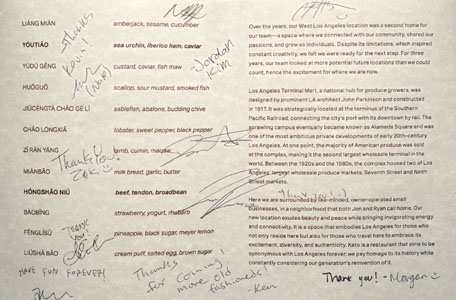 LIÁNG MIÀN amberjack, sesame, cucumber
YÓUTIÁO sea urchin, iberico ham, caviar
YÚDÙ GĒNG custard, caviar, fish maw
HUǑGUŌ scallop, sour mustard, smoked fish
JIǓCÉNGTǍ CHǍO GÉ LÍ sablefish, abalone, budding chive
CHǍO LÓNGXIĀ lobster, sweet pepper, black pepper
ZĪ RÁN YÁNG lamb, cumin, maqaw
MIÀNBĀO milk bread, garlic, butter
HÓNGSHĀO NIÚ beef, tendon, broadbean
BÀOBĪNG strawberry, yogurt, rhubarb
FÈNGLÍSŪ pineapple, black sugar, meyer lemon
LIÚSHĀ BĀO cream puff, salted egg, brown sugar
Over the years, our West Los Angeles location was a second home for
our team—a space where we connected with our community, shared our
passions, and grew as individuals. Despite its limitations, which inspired
constant creativity, we felt we were ready for the next step. For three
years, our team looked at more potential future locations than we could
count, hence the excitement for where we are now.
Los Angeles Terminal Mart, a national hub for produce growers, was
designed by prominent LA architect John Parkinson and constructed
in 1917. It was strategically located at the terminus of the Southern
Pacific Railroad, connecting the city's port with its downtown by rail. The
sprawling campus eventually became known as Alameda Square and was
one of the most ambitious private developments of early 20th-century
Los Angeles. At one point, the majority of American produce was sold
at the complex, making it the second largest wholesale terminal in the
world. Between the 1920s and the 1980s, the complex housed two of Los
Angeles' largest wholesale produce markets, Seventh Street and Ninth
Street markets.
Here we are surrounded by like-minded, owner-operated small
businesses, in a neighborhood that both Jon and Ryan call home. Our
new location exudes beauty and peace while bringing invigorating energy
and connectivity. It is a space that embodies Los Angeles for those who
not only reside here but also for those who travel here to embrace its
excitement, diversity, and authenticity. Kato is a restaurant that aims to be
synonymous with Los Angeles forever; we pay homage to its history while
constantly considering our generation's reinvention of it.
Thanks
(Nate)
Jordan
Kim
Thank you!
Zek
THANK
YOU!
HAVE FUN FOREVER!
Thanks
for coming!
more old
fashioneds!
- Ken
Thank you!
Thank you! - Morgan